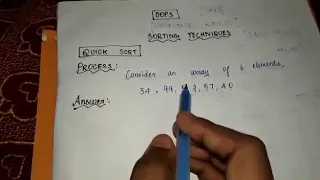 OOPS
SORTING TECHNIQUES
QUICK SORT
PROCESS:
Consider an array of 6 elements,
34, 99, 57, 40.
Answer: